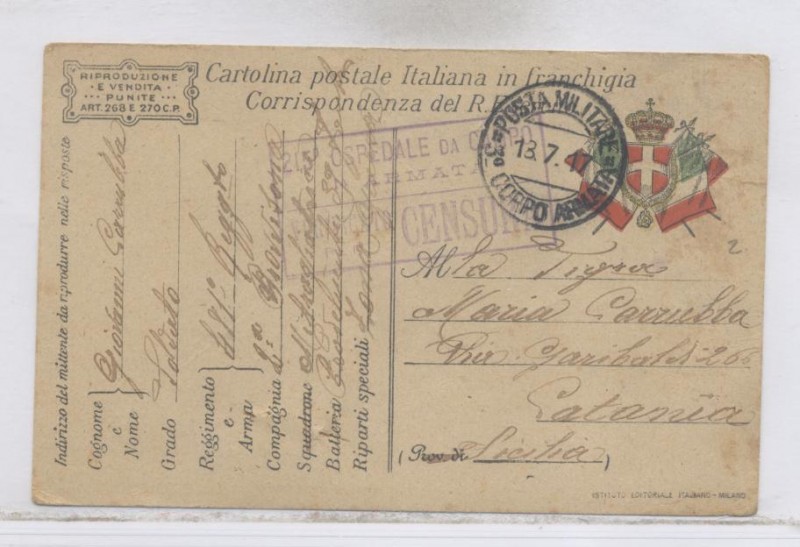 RIPRODUZIONE
E VENDITA
PUNITE
ART. 268 E 270 C.P.
Cartolina postale Italiana in franchigia
Corrispondenza del R.
POSTA MILITARE
18.7.17
CORPO ARMATA
OSPEDALE DA CAMPO
ARMATA
CENSURA
Alla
Maria Carrubba
Via Garibaldi 266
Catania
(Prov. di Sicilia)
Indirizzo del mittente da riprodurre nelle risposte
Cognome e Nome Giovanni Carrubba
Grado Soldato
Reggimento e Arma
Compagnia
Squadrone
Batteria
Riparti speciali Zona
ISTITUTO EDITORIALE ITALIANO - MILANO
2